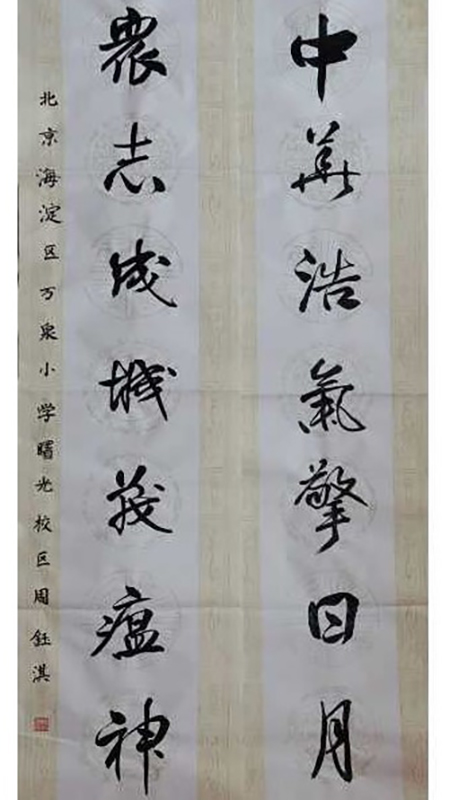 中華浩氣擎日月
衆志成城瘟神
北京海淀区万泉小学曙光校区周鈺淇